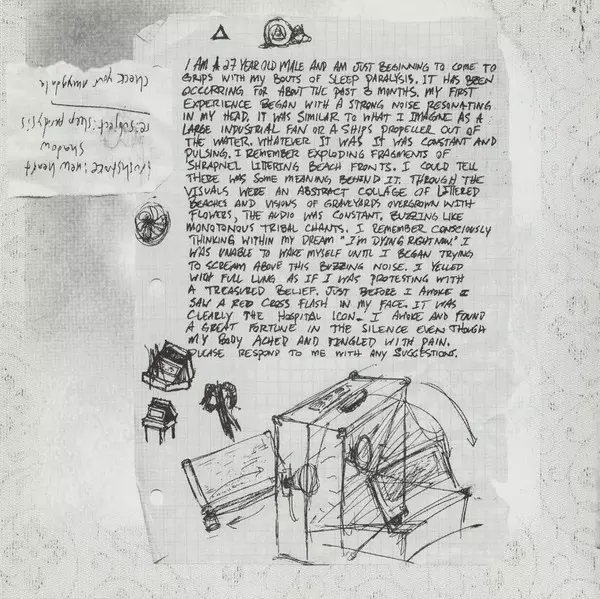 I AM A 27 YEAR OLD MALE AND AM JUST BEGINNING TO COME TO
GRIPS WITH MY BOUTS OF SLEEP PARALYSIS. IT HAS BEEN
OCCURRING FOR ABOUT THE PAST 3 MONTHS. MY FIRST
EXPERIENCE BEGAN WITH A STRONG NOISE RESONATING
IN MY HEAD. IT WAS SIMILAR TO WHAT I IMAGINE AS A
LARGE INDUSTRIAL FAN OR A SHIPS PROPELLER OUT OF
THE WATER. WHATEVER IT WAS IT WAS CONSTANT AND
PULSING. I REMEMBER EXPLODING FRAGMENTS OF
SHRAPNEL LITERING BEACH FRONTS. I COULD TELL
THERE WAS SOME MEANING BEHIND IT. THROUGH THE
VISUALS WERE AN ABSTRACT COLLAGE OF LITTERED
BEACHES AND VISIONS OF GRAVEYARDS OVERGROWN WITH
FLOWERS, THE AUDIO WAS CONSTANT. BUZZING LIKE
MONOTONOUS TRIBAL CHANTS. I REMEMBER CONSCIOUSLY
THINKING WITHIN MY DREAM "I'M DYING RIGHT NOW." I
WAS UNABLE TO WAKE MYSELF UNTIL I BEGAN TRYING
TO SCREAM ABOVE THIS BUZZING NOISE. I YELLED
WITH FULL LUNG AS IF I WAS PROTESTING WITH
A TREASURED BELIEF. JUST BEFORE I AWOKE I
SAW A RED CROSS FLASH IN MY FACE. IT WAS
CLEARLY THE HOSPITAL ICON. I AWOKE AND FOUND
A GREAT FORTUNE IN THE SILENCE EVEN THOUGH
MY BODY ACHED AND TINGLED WITH PAIN.
PLEASE RESPOND TO ME WITH ANY SUGGESTIONS.
: new heart
shadow
re: subject: sleep paralysis
check your amygdala